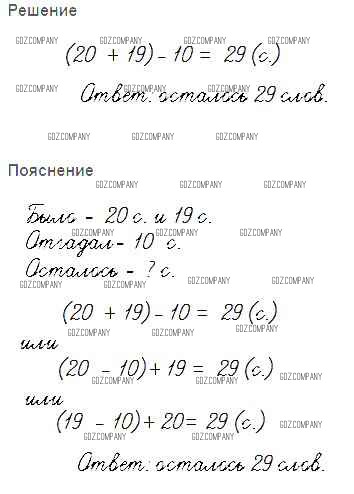 Решение
GDZCOMPANY GDZCOMPANY GDZCOMPANY GDZCOMPANY
(20 + 19) - 10 = 29 (с.)
GDZCOMPANY GDZCOMPANY GDZCOMPANY GDZCOMPANY
Ответ: осталось 29 слов.
GDZCOMPANY GDZCOMPANY GDZCOMPANY
Пояснение
GDZCOMPANY GDZCOMPANY GDZCOMPANY
Было - 20 с. и 19 с.
GDZCOMPANY GDZCOMPANY GDZCOMPANY
Отгадал - 10 с.
Осталось - ? с.
GDZCOMPANY GDZCOMPANY GDZCOMPANY GDZCOMPANY
(20 + 19) - 10 = 29 (с.)
GDZCOMPANY GDZCOMPANY GDZCOMPANY
или
(20 - 10) + 19 = 29 (с.)
GDZCOMPANY GDZCOMPANY GDZCOMPANY
или
(19 - 10) + 20 = 29 (с.)
GDZCOMPANY GDZCOMPANY GDZCOMPANY
Ответ: осталось 29 слов.